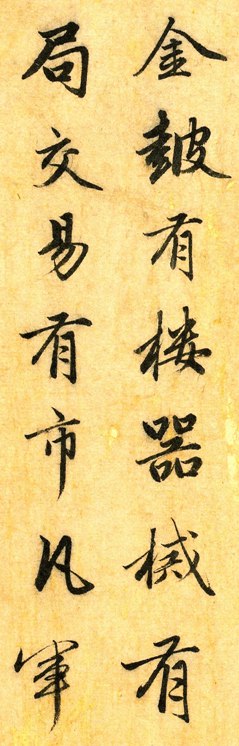 金皷有楼器械有
局交易有市凡軍